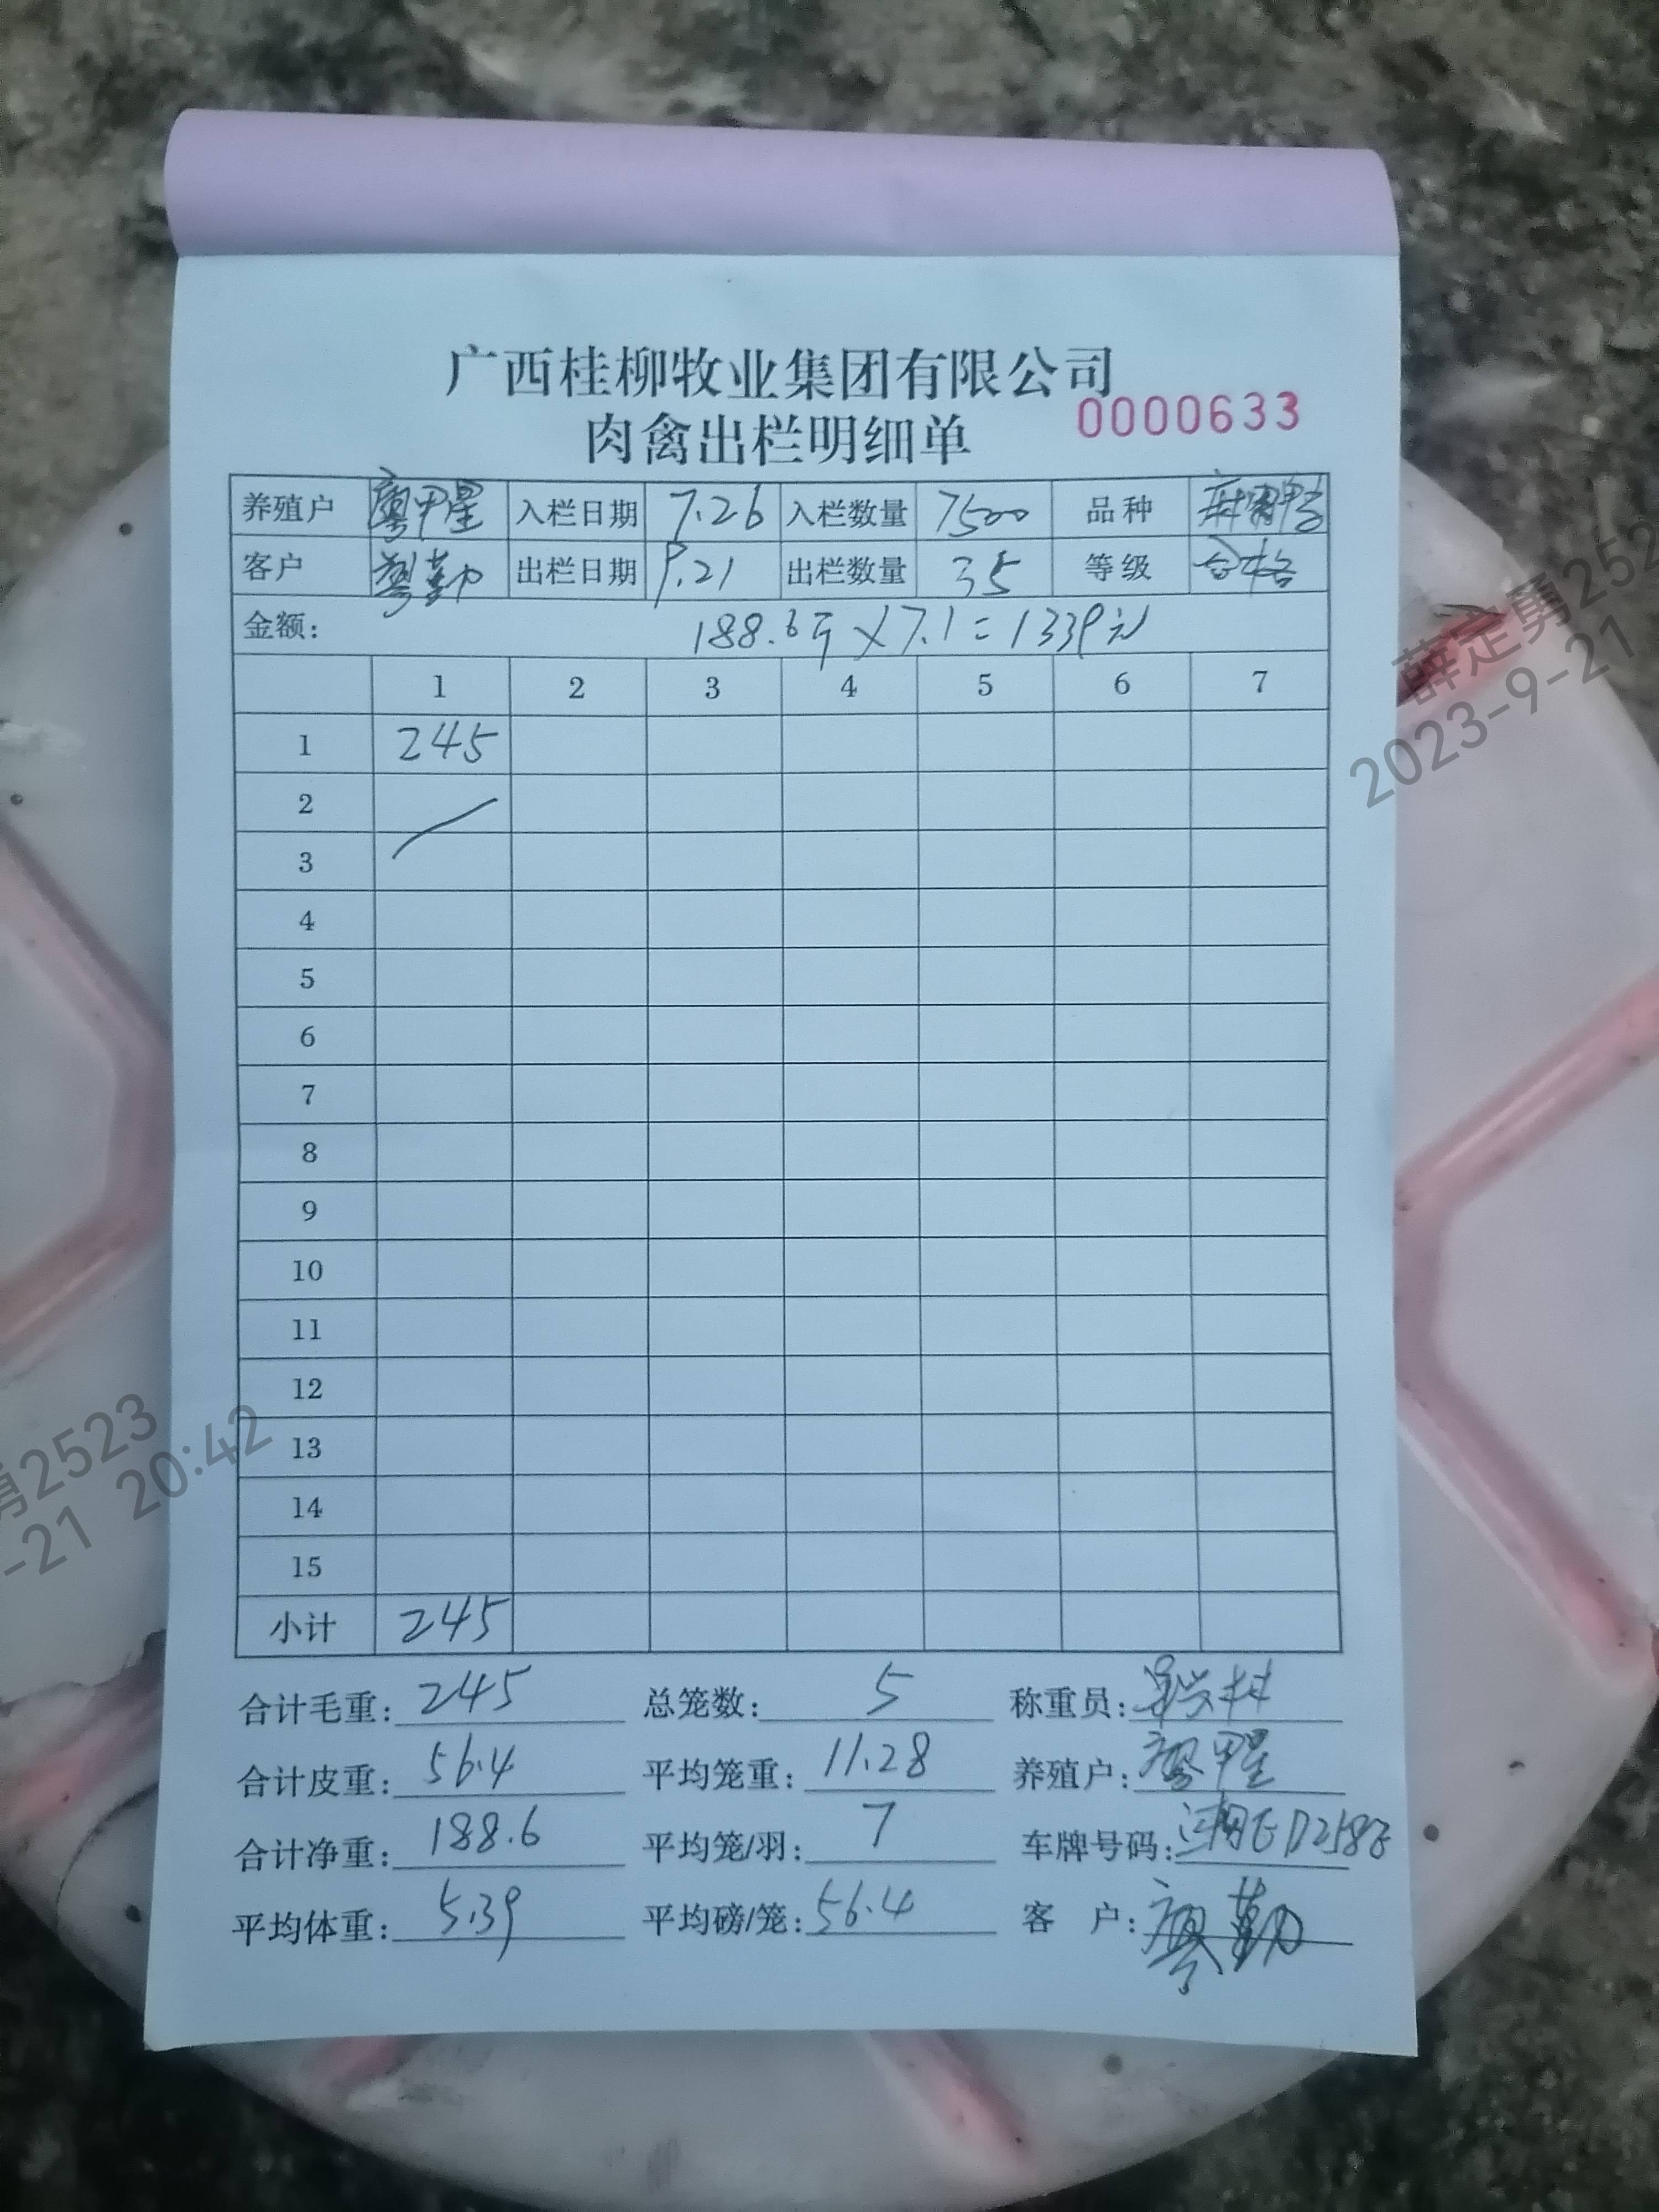 广西桂柳牧业集团有限公司
肉禽出栏明细单 0000633
养殖户 廖甲星 入栏日期 7.26 入栏数量 7500 品种
客户 廖勤 出栏日期 9.21 出栏数量 35 等级 合格
金额: 188.6斤×7.1=1339元
1 2 3 4 5 6 7
1 245
2
3
4
5
6
7
8
9
10
11
12
13
14
15
小计 245
合计毛重: 245 总笼数: 5 称重员:
合计皮重: 56.4 平均笼重: 11.28 养殖户: 廖甲星
合计净重: 188.6 平均笼/羽: 7 车牌号码:
平均体重: 5.39 平均磅/笼: 56.4 客 户: 廖勤
薛定勇252
2023-9-21
勇2523
-21 20:42